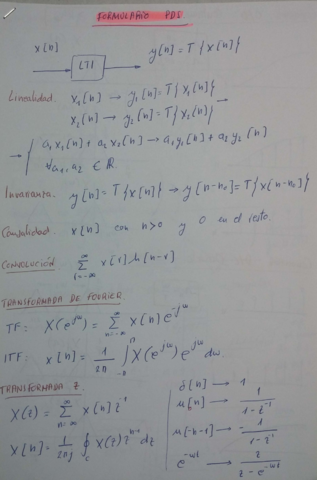 FORMULARIO PDS
x[n] → LTI → y[n]=T{x[n]}
Linealidad. x₁[n] → y₁[n]=T{x₁[n]}
x₂[n] → y₂[n]=T{x₂[n]} →
→ { a₁x₁[n]+a₂x₂[n] → a₁y₁[n]+a₂y₂[n]
∀a₁,a₂ ∈ ℝ.
Invarianza. y[n]=T{x[n]} → y[n-n₀]=T{x[n-n₀]}
Causalidad. x[n] con n>0 y 0 en el resto.
CONVOLUCIÓN ∑_{r=-∞}^{∞} x[r]h[n-r]
TRANSFORMADA DE FOURIER.
TF: X(e^{jω}) = ∑_{n=-∞}^{∞} x[n]e^{-jω}
ITF: x[n] = 1/2π ∫_{-π}^{π} X(e^{jω})e^{jω}dω.
TRANSFORMADA Z
X(z) = ∑_{n=-∞}^{∞} x[n]z^{-1}
X[n] = 1/2πj ∮_c X(z)z^{n-1}dz
δ[n] → 1
u[n] → 1/(1-z^{-1})
u[-n-1] → -1/(1-z^{-1})
e^{-ωt} → z/(z-e^{-ωt})